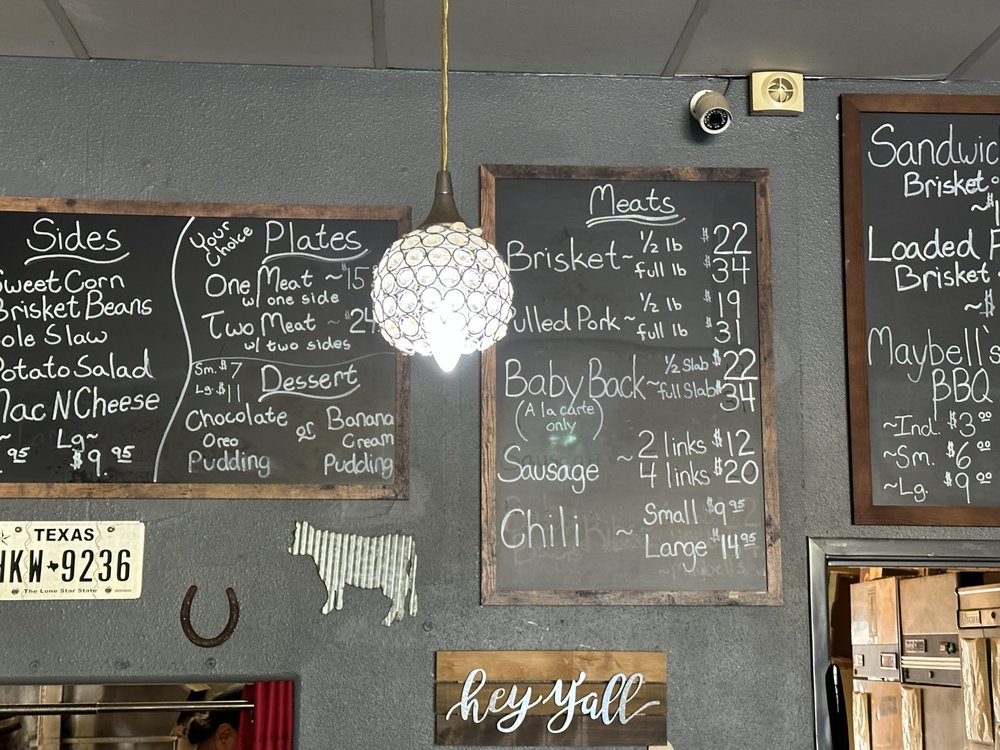 Sides
Sweet Corn
Brisket Beans
Cole Slaw
Potato Salad
Mac N Cheese
Lg~
$9.95
Your Choice
Plates
One Meat ~ $15
w/ one side
Two Meat ~ $24
w/ two sides
Sm. $7
Lg. $11
Dessert
Chocolate or Banana
Oreo Cream
Pudding Pudding
Meats
Brisket ~ 1/2 lb $22
full lb $34
Pulled Pork ~ 1/2 lb $19
full lb $31
Baby Back ~ 1/2 Slab $22
full Slab $34
(A la carte only)
Sausage ~ 2 links $12
4 links $20
Chili ~ Small $9.95
Large $14.95
Sandwic
Brisket
Loaded
Brisket
Maybell's
BBQ
~Ind. $3.00
~Sm. $6.00
~Lg. $9.00
TEXAS
HKW 9236
The Lone Star State
hey y'all